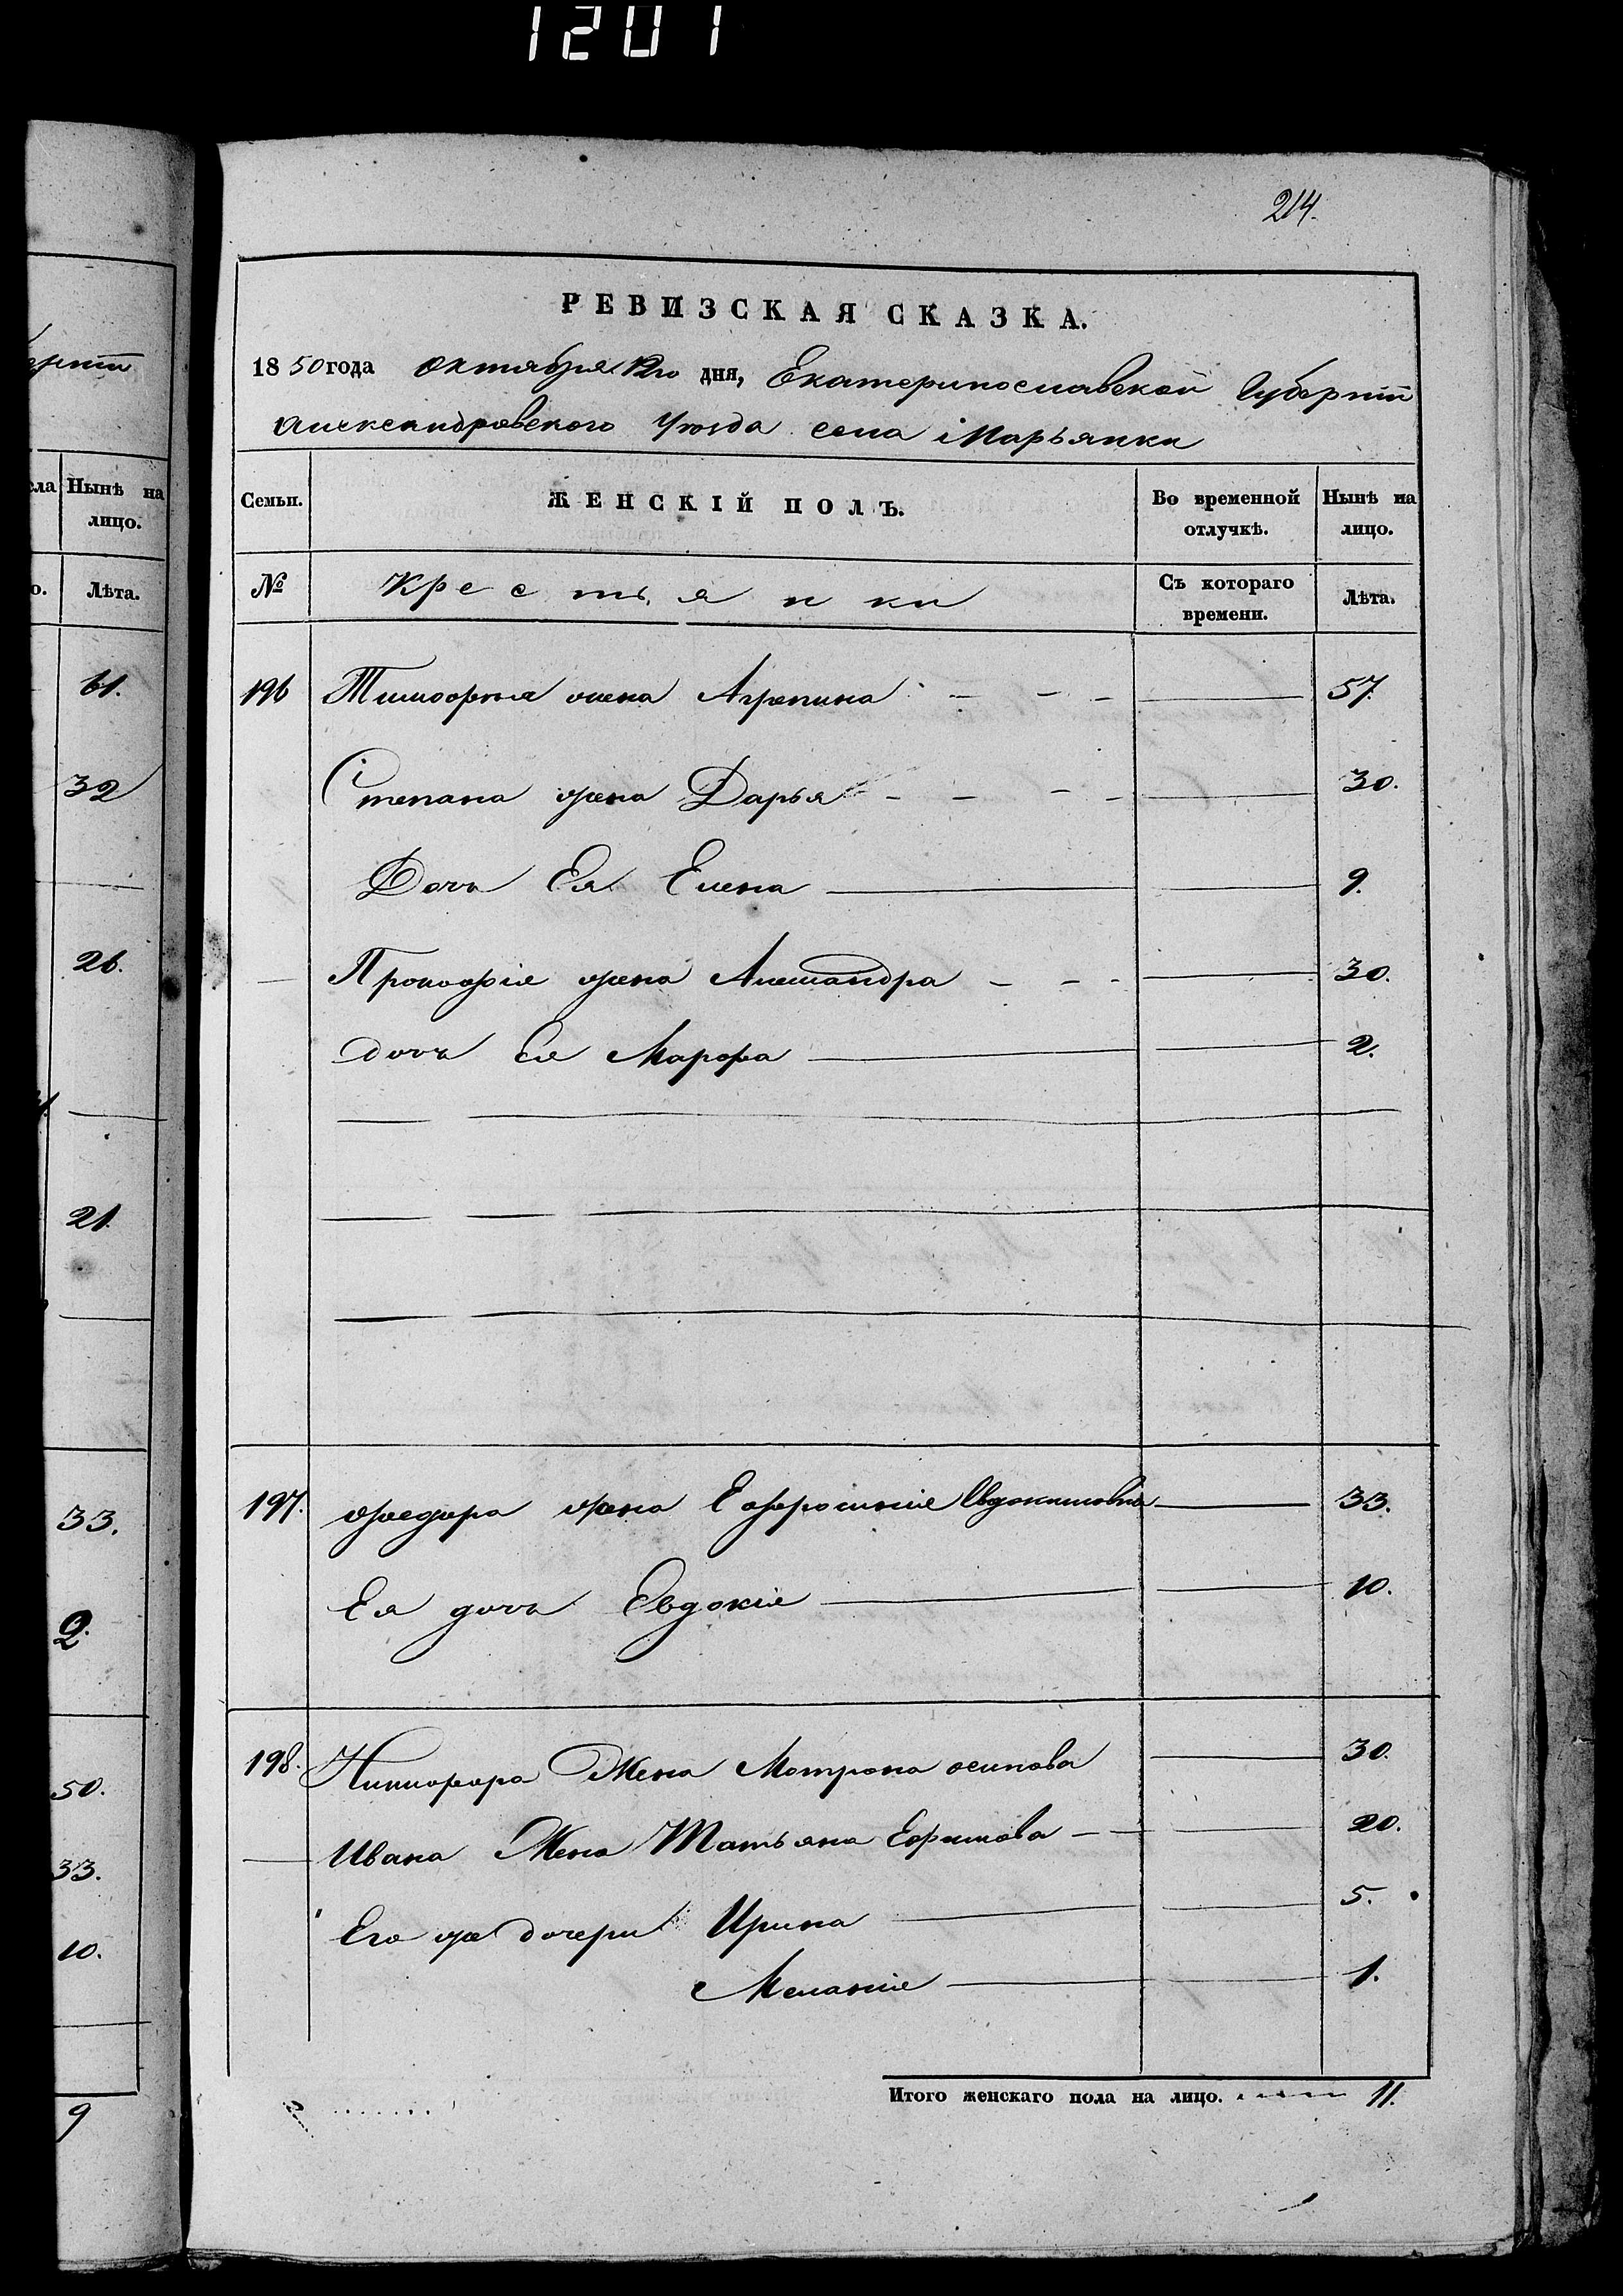 1201
214.
РЕВИЗСКАЯ СКАЗКА.
1850 года октября 12го дня, Екатеринославской Губернiи
Александровского Уѣзда села Марьянки
Семьи. ЖЕНСКІЙ ПОЛЪ. Во временной отлучкѣ. Нынѣ на лицо.
№ Крестьянки Съ котораго времени. Лѣта.
196 Тимофея жена Агрепина 57.
Степана жена Дарья 30.
Дочь Ея Елена 9.
Прокофія жена Александра 30.
дочь Ея Марфа 2.
197. Федора жена Ефросинія Евдокимовна 33.
Ея дочь Евдокія 10.
198. Никифора Жена Матрона осипова 30.
Ивана Жена Татьяна Ефимова 20.
Его же дочери Ирина 5.
Меланія 1.
Итого женскаго пола на лицо. 11.
ела Нынѣ на лицо.
о. Лѣта.
61.
32
26.
21.
33.
2.
50.
33.
10.
9